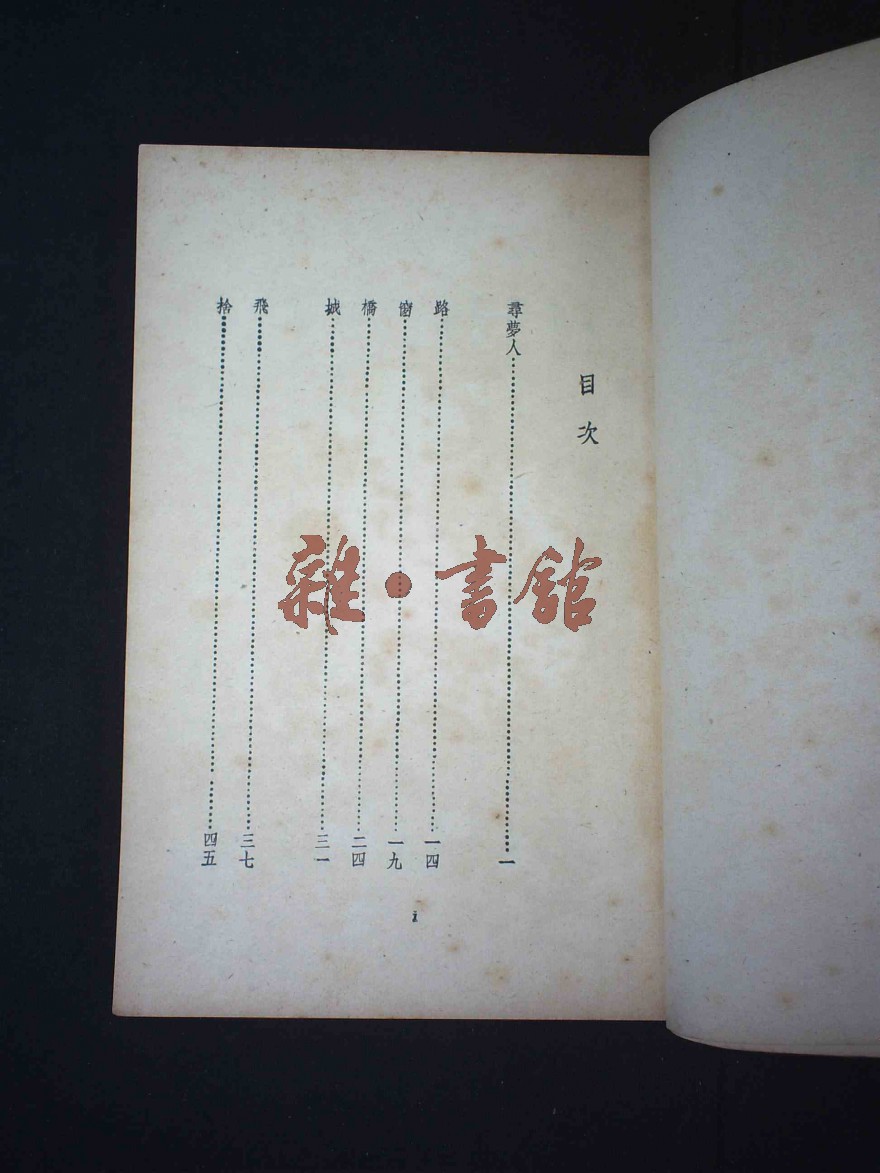 目次
尋夢人……一
路……一四
窗……一九
橋……二四
城……三一
飛……三七
捨……四五
1
雜·書館